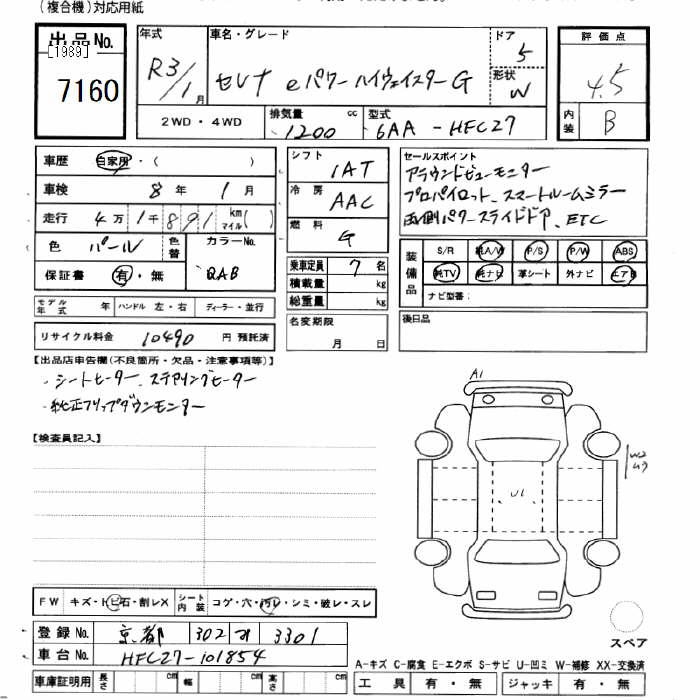 (複合機)対応用紙
出品No.
[1989]
7160
年式
R3/1月
車名・グレード
セレナ eパワー ハイウェイスターG
ドア
5
形状
W
評価点
4.5
内装
B
2WD・4WD
排気量
1200 cc
型式
6AA-HFC27
車歴 自家用・( )
車検 8年 1月
走行 4万1千891 km マイル( )
色 パール 色替
カラーNo.
QAB
保証書 有・無
シフト
IAT
冷房
AAC
燃料
G
乗車定員 7名
積載量 kg
総重量 kg
名変期限
月 日
セールスポイント
アラウンドビューモニター
プロパイロット、スマートルームミラー
両側パワースライドドア、ETC
装備品
S/R 純A/W P/S P/W ABS
純TV 純ナビ 革シート 外ナビ エアB
ナビ型番:
後日品
モデル年式 年 ハンドル 左・右 ディーラー・並行
リサイクル料金 10490 円 預託済
【出品店申告欄(不良箇所・欠品・注意事項等)】
・シートヒーター、ステアリングヒーター
・純正フリップダウンモニター
【検査員記入】
A1
U1
W2
FW キズ・トビ石・割レX シート内装 コゲ・穴・汚レ・シミ・破レ・スレ
登録No. 京都 302 す 3301
車台No. HFC27-101854
車庫証明用 長さ cm 幅 cm cm
スペア
A-キズ C-腐食 E-エクボ S-サビ U-凹ミ W-補修 XX-交換済
工具 有・無 ジャッキ 有・無